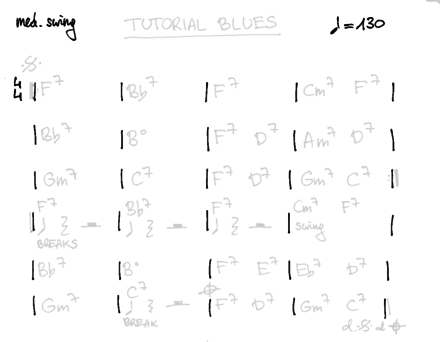 med. swing TUTORIAL BLUES ♩=130
𝄋
4/4 | F7 | Bb7 | F7 | Cm7 F7 |
| Bb7 | B° | F7 D7 | Am7 D7 |
| Gm7 | C7 | F7 D7 | Gm7 C7 |
| F7 | Bb7 | F7 | Cm7 F7 |
BREAKS swing
| Bb7 | B° | F7 E7 | Eb7 D7 |
| Gm7 | C7 | F7 D7 | Gm7 C7 |
BREAK d.𝄋 al 𝄌